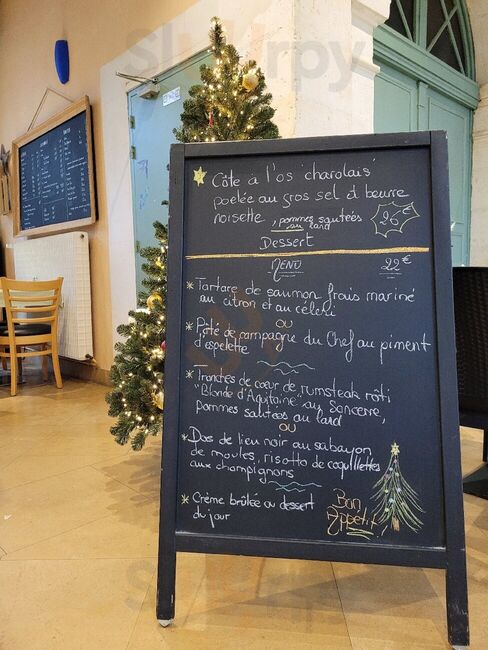 Côte à l'os 'charolais'
poêlée au gros sel & beurre
noisette, pommes sautées
au lard
26€
Dessert
MENU 22€
* Tartare de saumon frais mariné
au citron et au céleri
OU
* Pâté de campagne du Chef au piment
d'espelette
* Tranches de cœur de rumsteak rôti
"Blonde d'Aquitaine" au Sancerre,
pommes sautées au lard
OU
* Dos de lieu noir au sabayon
de moules, risotto de coquillettes
aux champignons
* Crème brûlée ou dessert
du jour
Bon
Appetit
Slurrpy